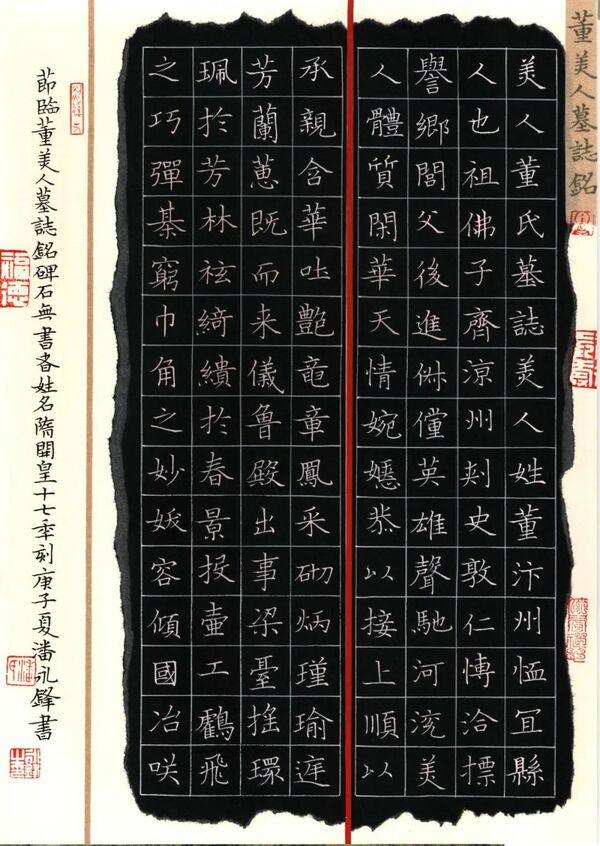 董美人墓誌銘
美人董氏墓誌美人姓董汴州恤冝縣
人也祖佛子齊涼州刺史敦仁博洽摽
譽鄉閭父後進俶儻英雄聲馳河渷美
人體質閑華天情婉嫕恭以接上順以
承親含華吐艷竜章鳳采砌炳瑾瑜庭
芳蘭蕙既而来儀魯殿出事梁臺搖環
珮於芳林袨綺繢於春景投壺工鶴飛
之巧彈棊窮巾角之妙妖容傾國冶咲
莭臨董美人墓誌銘碑石無書者姓名隋開皇十七年刻庚子夏潘永鋒書
福德